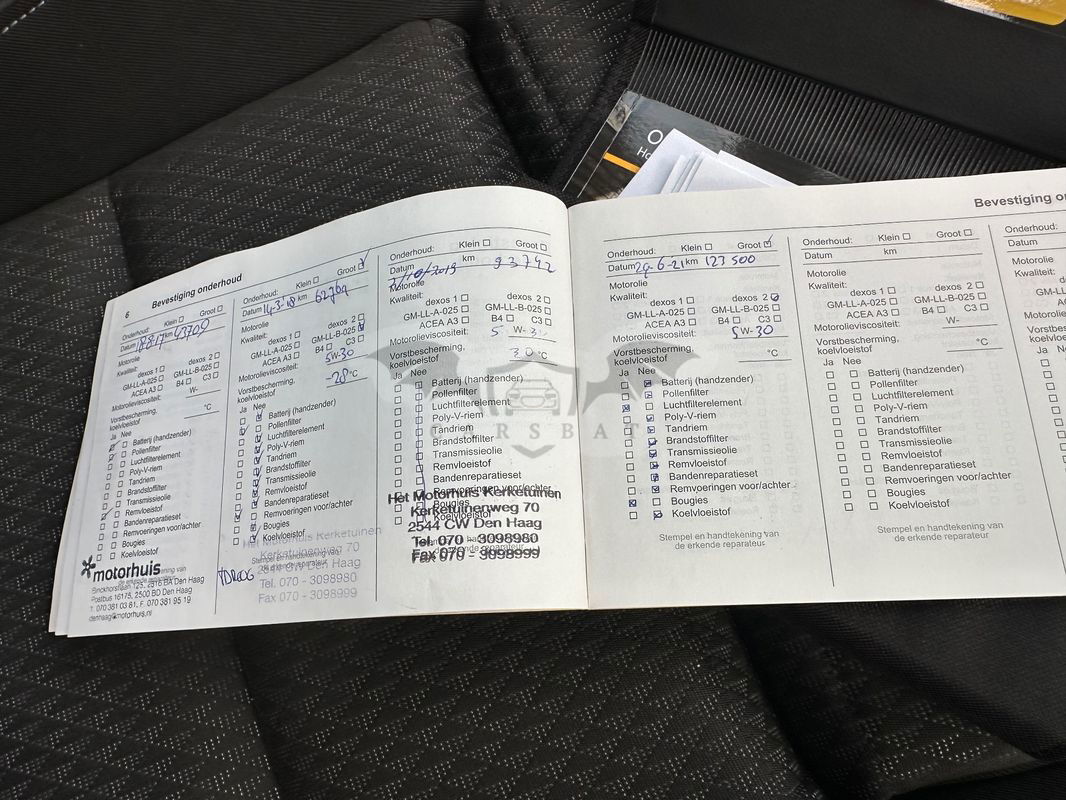 6
Bevestiging onderhoud
Onderhoud: Klein ☐ Groot ☐
Datum 18-8-17 km 43709
Motorolie
Kwaliteit:
dexos 1 ☐ dexos 2 ☐
GM-LL-A-025 ☐ GM-LL-B-025 ☐
ACEA A3 ☐ B4 ☐ C3 ☐
Motorolieviscositeit: W-
Vorstbescherming, koelvloeistof °C
Ja Nee
Batterij (handzender)
Pollenfilter
Luchtfilterelement
Poly-V-riem
Tandriem
Brandstoffilter
Transmissieolie
Remvloeistof
Bandenreparatieset
Remvoeringen voor/achter
Bougies
Koelvloeistof
motorhuis
Binckhorstlaan 125, 2516 BA Den Haag
Postbus 16175, 2500 BD Den Haag
t. 070 381 03 81, F. 070 381 95 19
denhaag@motorhuis.nl
Onderhoud: Klein ☐ Groot ☑
Datum 14-3-18 km 62769
Motorolie
Kwaliteit:
dexos 1 ☐ dexos 2 ☐
GM-LL-A-025 ☐ GM-LL-B-025 ☑
ACEA A3 ☐ B4 ☐ C3 ☐
Motorolieviscositeit: 5W-30
Vorstbescherming, koelvloeistof -28 °C
Ja Nee
Batterij (handzender)
Pollenfilter
Luchtfilterelement
Poly-V-riem
Tandriem
Brandstoffilter
Transmissieolie
Remvloeistof
Bandenreparatieset
Remvoeringen voor/achter
Bougies
Koelvloeistof
Het Motorhuis Kerketuinen
Kerketuinenweg 70
Stempel en handtekening van
de erkende reparateur
2544 CW Den Haag
Tel. 070 - 3098980
Fax 070 - 3098999
Onderhoud: Klein ☐ Groot ☐
Datum /10/2019 km 93742
Motorolie
Kwaliteit:
dexos 1 ☐ dexos 2 ☐
GM-LL-A-025 ☐ GM-LL-B-025 ☐
ACEA A3 ☐ B4 ☐ C3 ☐
Motorolieviscositeit: 5 W-3
Vorstbescherming, koelvloeistof 30 °C
Ja Nee
Batterij (handzender)
Pollenfilter
Luchtfilterelement
Poly-V-riem
Tandriem
Brandstoffilter
Transmissieolie
Remvloeistof
Bandenreparatieset
Remvoeringen voor/achter
Bougies
Koelvloeistof
Het Motorhuis Kerketuinen
Kerketuinenweg 70
2544 CW Den Haag
Tel. 070 - 3098980
Fax 070 - 3098999
Bevestiging
Onderhoud: Klein ☐ Groot ☑
Datum 29-6-21 km 123500
Motorolie
Kwaliteit:
dexos 1 ☐ dexos 2 ☑
GM-LL-A-025 ☐ GM-LL-B-025 ☐
ACEA A3 ☐ B4 ☐ C3 ☐
Motorolieviscositeit: 5W-30
Vorstbescherming, koelvloeistof °C
Ja Nee
Batterij (handzender)
Pollenfilter
Luchtfilterelement
Poly-V-riem
Tandriem
Brandstoffilter
Transmissieolie
Remvloeistof
Bandenreparatieset
Remvoeringen voor/achter
Bougies
Koelvloeistof
Stempel en handtekening van
de erkende reparateur
Onderhoud: Klein ☐ Groot ☐
Datum km
Motorolie
Kwaliteit:
dexos 1 ☐ dexos 2 ☐
GM-LL-A-025 ☐ GM-LL-B-025 ☐
ACEA A3 ☐ B4 ☐ C3 ☐
Motorolieviscositeit: W-
Vorstbescherming, koelvloeistof °C
Ja Nee
Batterij (handzender)
Pollenfilter
Luchtfilterelement
Poly-V-riem
Tandriem
Brandstoffilter
Transmissieolie
Remvloeistof
Bandenreparatieset
Remvoeringen voor/achter
Bougies
Koelvloeistof
Stempel en handtekening van
de erkende reparateur
Onderhoud:
Datum
Motorolie
Kwaliteit:
GM-LL-A
ACE
Motorolievis
Vorstbesche
koelvloeistof
Ja Nee